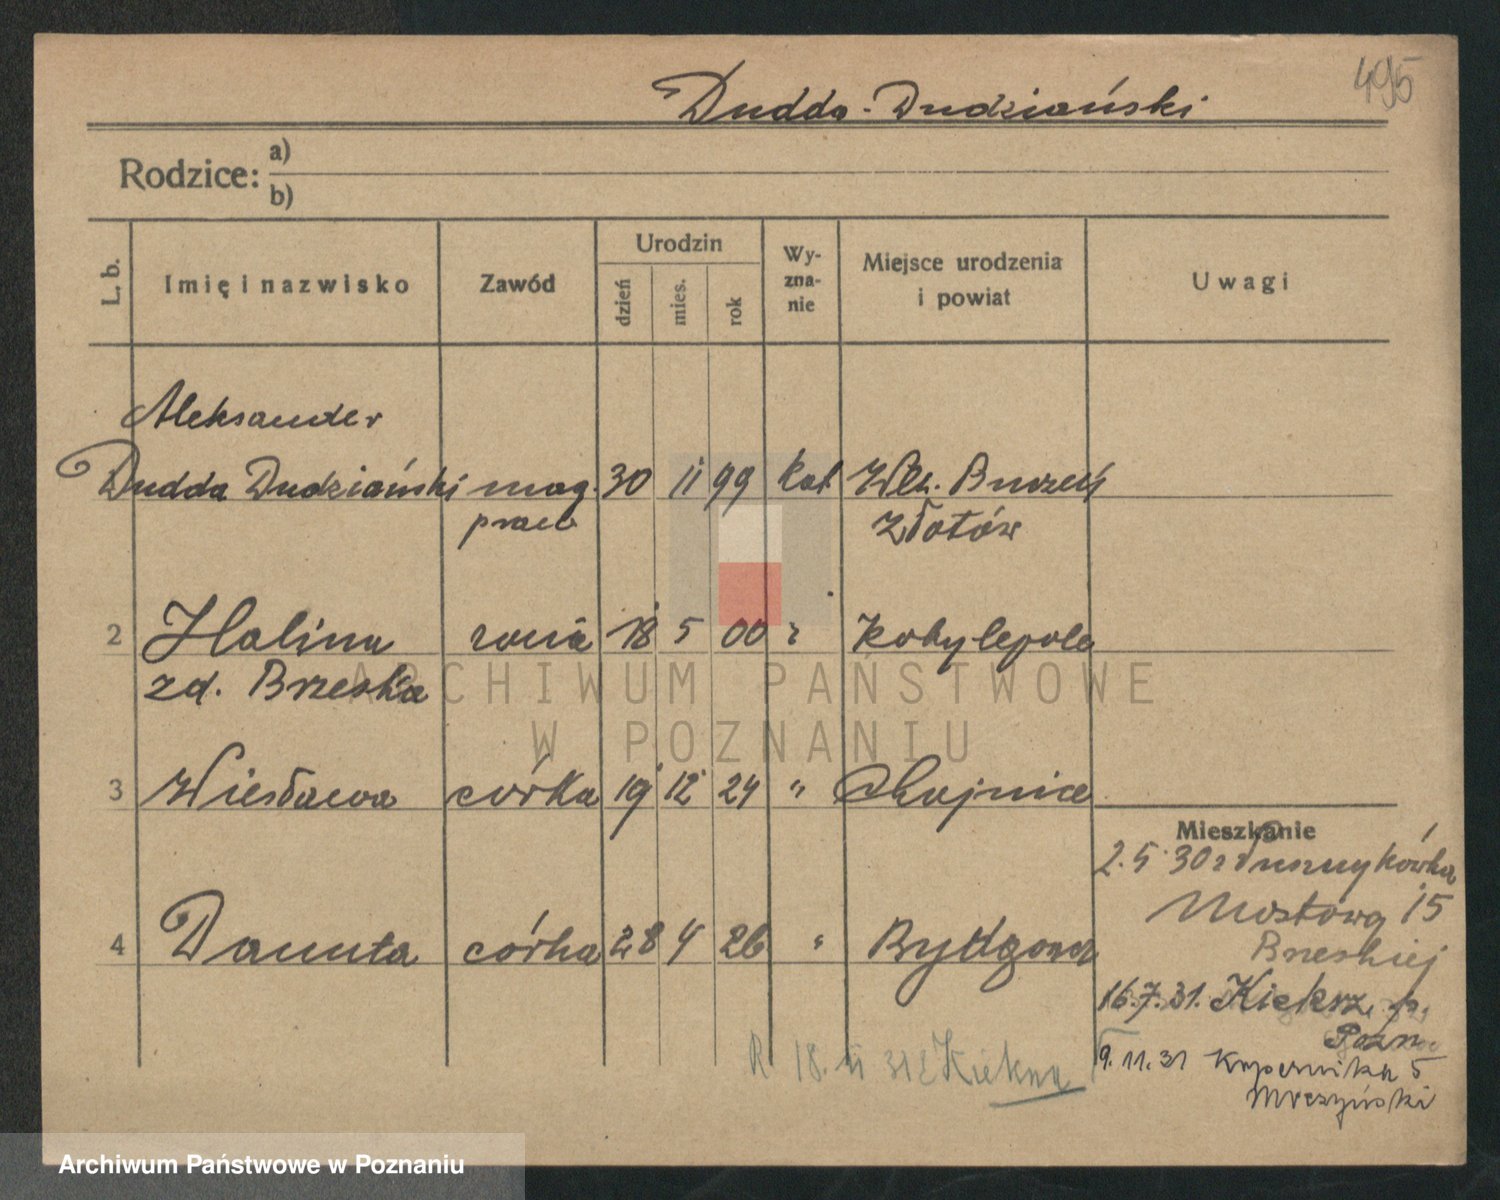 495
Dudda-Dudziański
Rodzice:
a)
b)
L. b.
Imię i nazwisko
Zawód
Urodzin
dzień
mies.
rok
Wy-
zna-
nie
Miejsce urodzenia
i powiat
Uwagi
Aleksander
Dudda Dudziański mag. 30 11 99 kat
prac
Złotów
2 Halina 18 5 00 Kobylepole
zd. Brzeska
3 Wiesława córka 19 12 24 " Chojnice
Mieszkanie
2.5.30
Mostowa 15
4 Danuta córka 28 4 26 " Bydgoszcz
Brzeskiej
16.7.31. Kiekrz, p.
Pozn
R 18. 31
9.11.31 Kopernika 5
Mreszyński
ARCHIWUM PAŃSTWOWE
W POZNANIU
Archiwum Państwowe w Poznaniu